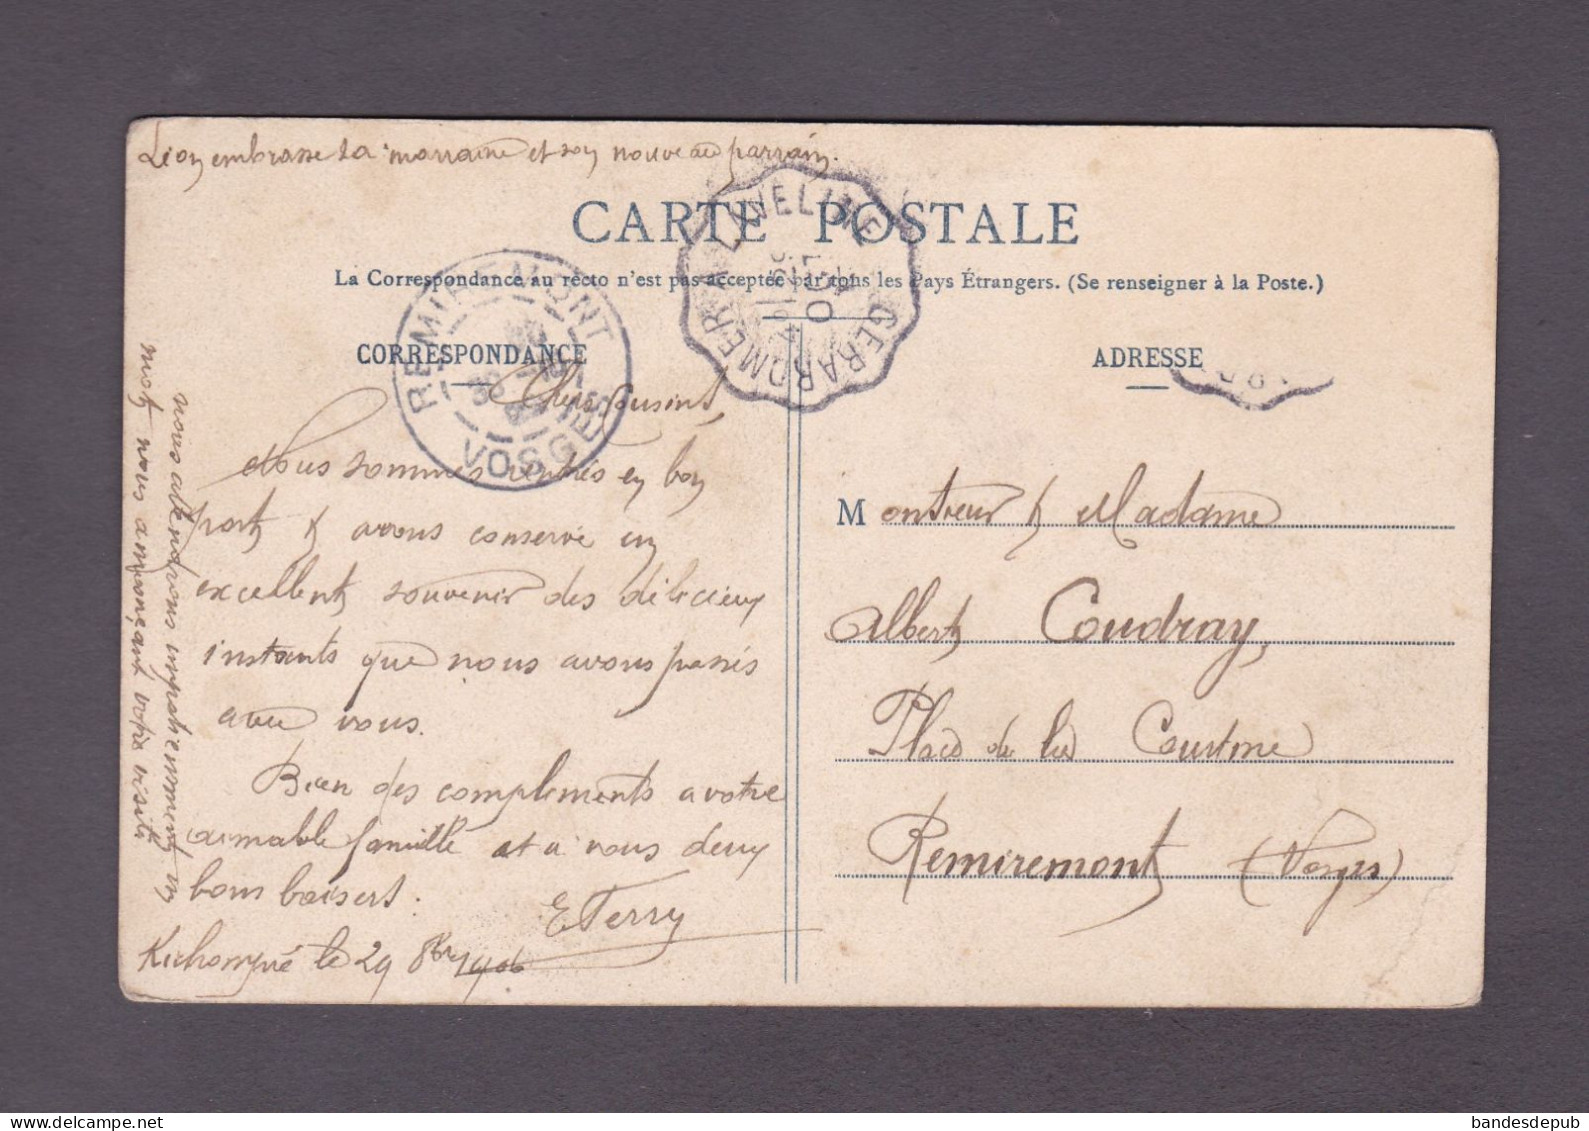 Léon embrasse sa marraine et son nouveau parrain.
CARTE POSTALE
La Correspondance au recto n'est pas acceptée par tous les Pays Étrangers. (Se renseigner à la Poste.)
CORRESPONDANCE
Chers Cousins,
Nous sommes rentrés en bon
port & avons conservé un
excellent souvenir des délicieux
instants que nous avons passés
avec vous.
Bien des compliments a votre
aimable famille et a vous deux
bons baisers.
E Terry
Kichompré le 29 8bre 1906
nous attendrons impatiemment un
mot nous annonçant votre visite
REMIREMONT
VOSGES
LAVELINE
GERARDMER A
ADRESSE
Monsieur & Madame
Albert Coudray,
Place de la Courtine
Remiremont (Vosges)
bandesdepub